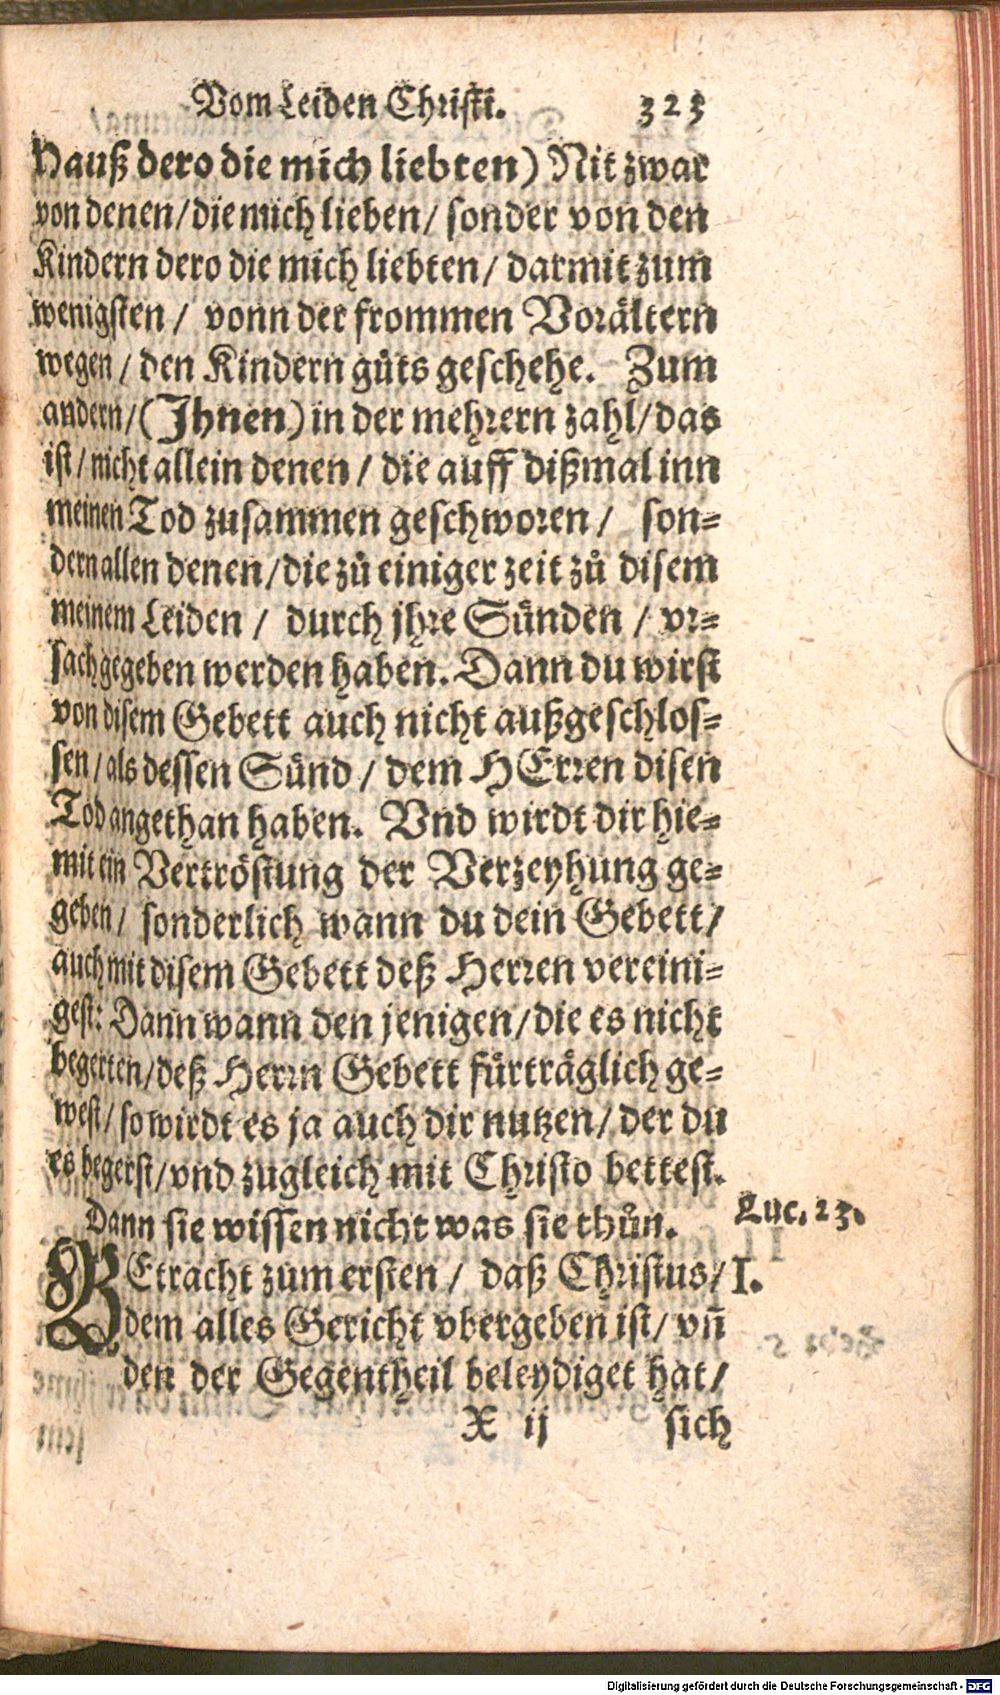 Vom Leiden Christi. 323
Hauß dero die mich liebten) Nit zwar
von denen/ die mich lieben/ sonder von den
Kindern dero die mich liebten/ darmit zum
wenigsten/ vonn der frommen Vorältern
wegen/ den Kindern gůts geschehe. Zum
andern/ (Ihnen) in der mehrern zahl/ das
ist/ nicht allein denen/ die auff dißmal inn
meinen Tod zusammen geschworen/ son⸗
dern allen denen/ die zů einiger zeit zů disem
meinem Leiden/ durch jhre Sünden/ vr⸗
sach gegeben werden haben. Dann du wirst
von disem Gebett auch nicht außgeschlos⸗
sen/ als dessen Sünd/ dem HErren disen
Tod angethan haben. Vnd wirdt dir hie⸗
mit ein Vertröstung der Verzeyhung ge⸗
geben/ sonderlich wann du dein Gebett/
auch mit disem Gebett deß Herren vereini⸗
gest: Dann wann den jenigen/ die es nicht
begerten/ deß Herrn Gebett fürträglich ge⸗
west/ so wirdt es ja auch dir nutzen/ der du
es begerst/ vnd zugleich mit Christo bettest.
Dann sie wissen nicht was sie thůn. Luc. 23.
BEtracht zum ersten/ daß Christus/ I.
dem alles Gericht vbergeben ist/ vñ
den der Gegentheil beleydiget hat/
X ij sich
Digitalisierung gefördert durch die Deutsche Forschungsgemeinschaft - DFG